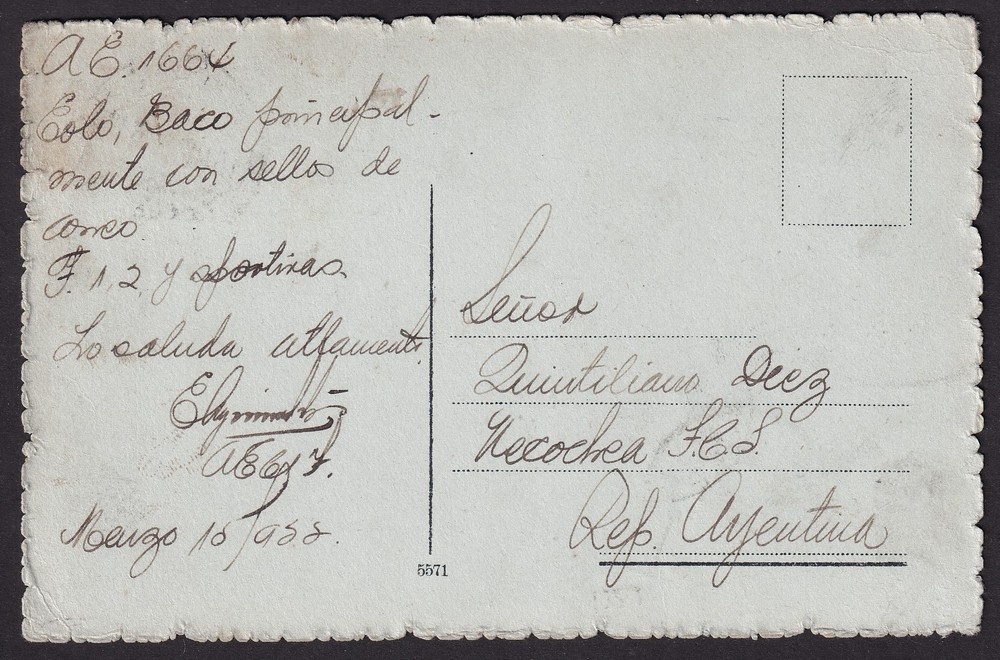 AE. 1664
Eolo, Baco principal-
mente con sellos de
correo
F. 1, 2 y sportivas
Lo saluda attamente.
Marzo 15/933.
5571
Señor
Quintiliano Diez
Necochea F.C.S.
Rep. Argentina